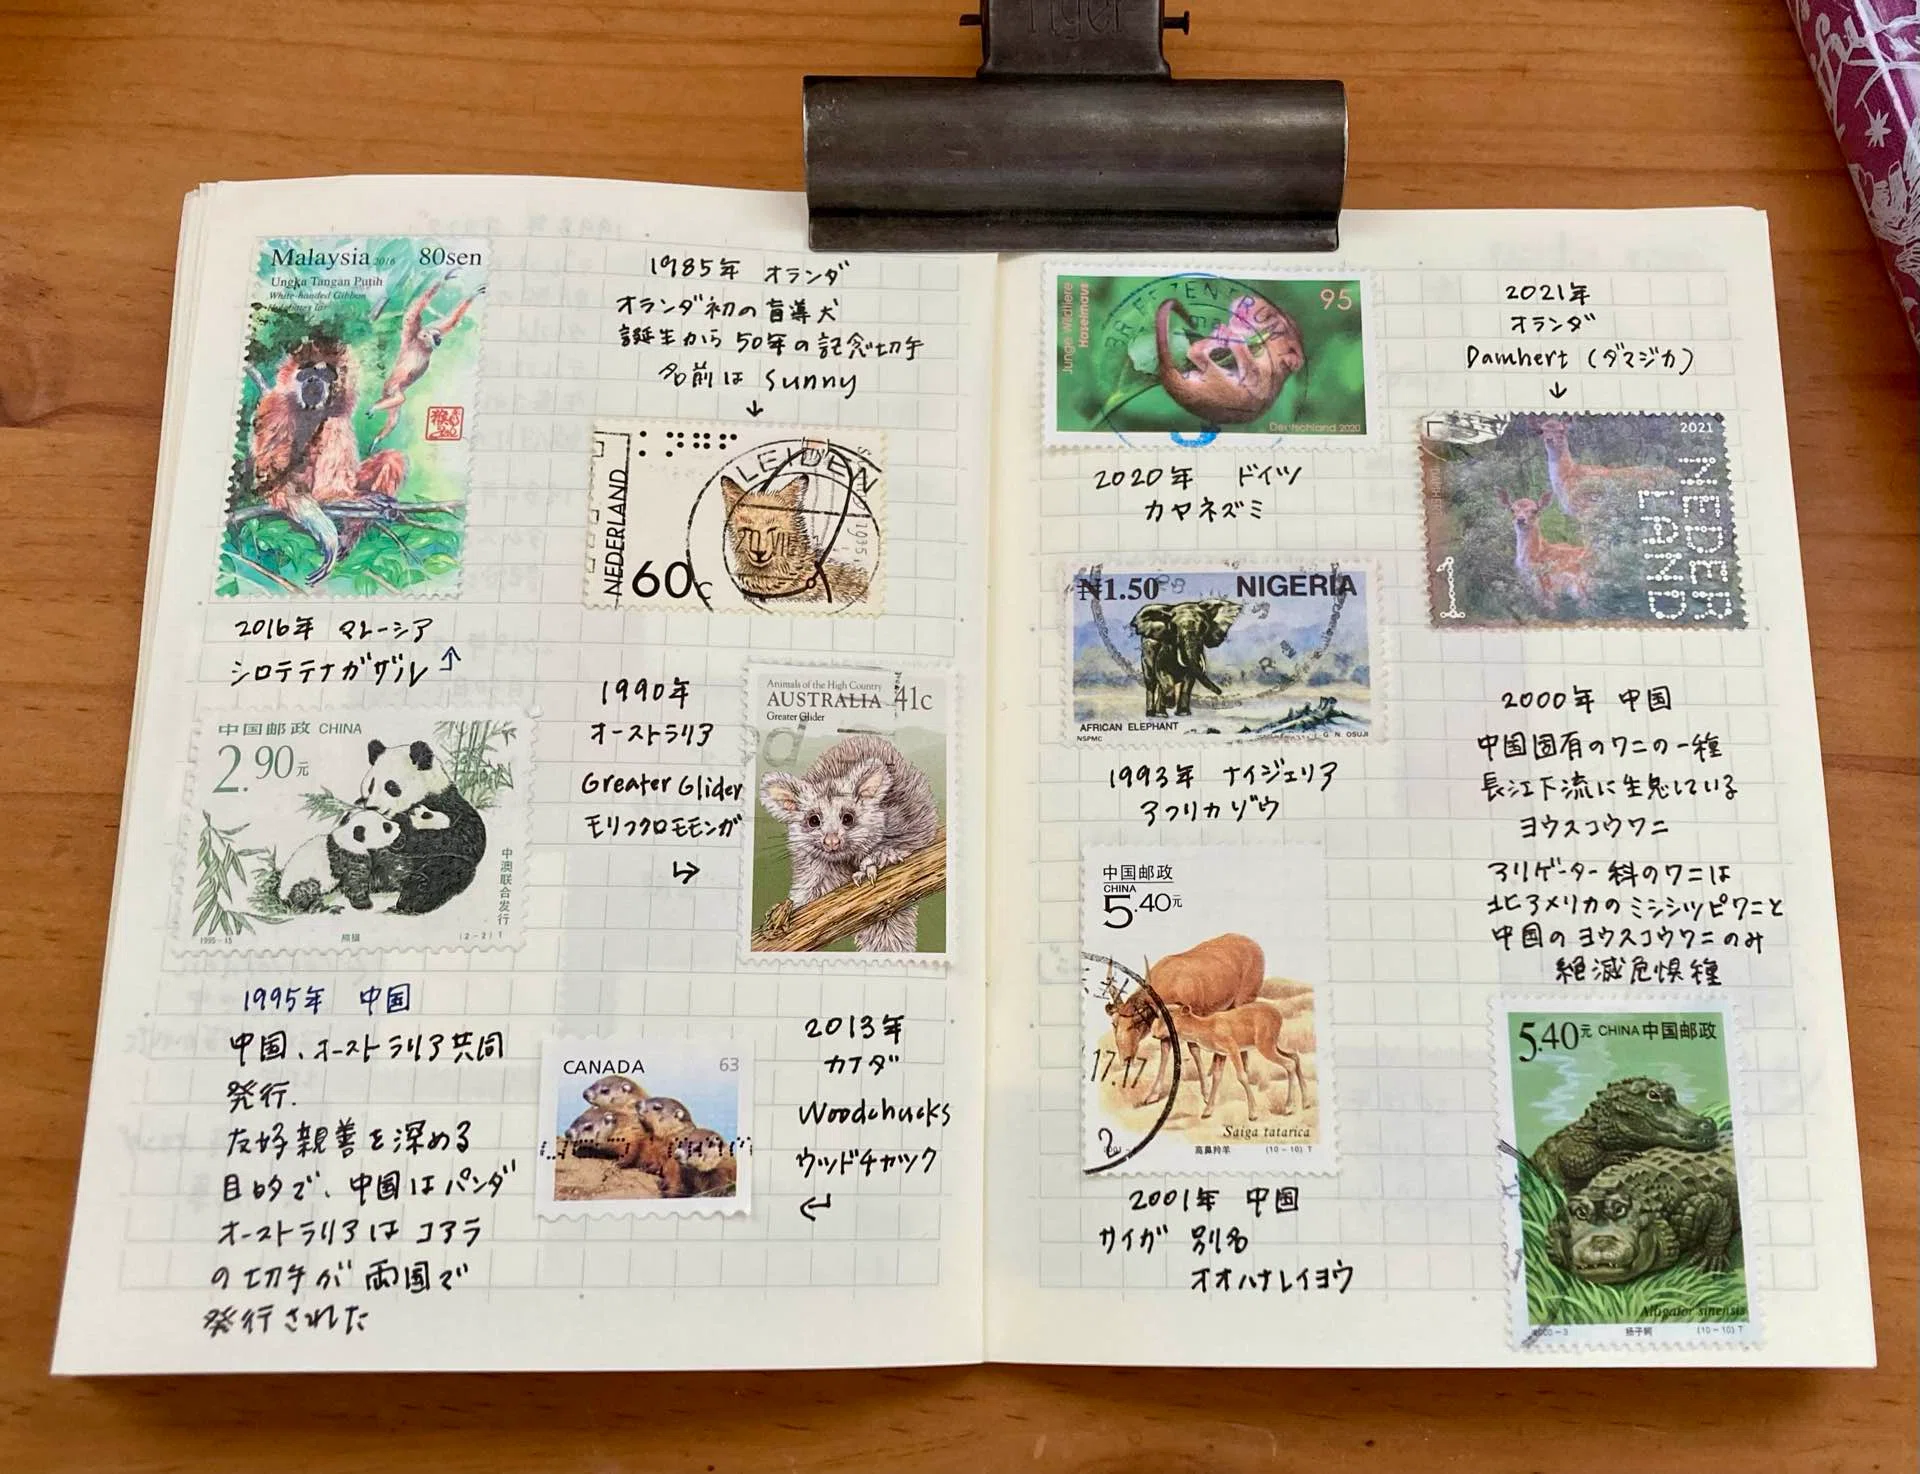 Tiger
Malaysia 2016 80sen
Ungka Tangan Putih
White-handed Gibbon
2016年 マレーシア
シロテテナガザル ↑
1985年 オランダ
オランダ初の盲導犬
誕生から50年の記念切手
名前は Sunny
↓
NEDERLAND
60c
LEIDEN
中国邮政 CHINA
2.90元
中澳联合发行
1995-15 熊猫 (2-2) T
1995年 中国
中国、オーストラリア共同
発行.
友好親善を深める
目的で、中国はパンダ
オーストラリアはコアラ
の切手が両国で
発行された
1990年
オーストラリア
Greater Glider
モリフクロモモンガ
↪
Animals of the High Country
AUSTRALIA 41c
Greater Glider
CANADA 63
2013年
カナダ
Woodchucks
ウッドチャック
↩
Junge Wildtiere
Haselmaus
95
Deutschland 2020
2020年 ドイツ
カヤネズミ
2021年
オランダ
Damhert (ダマジカ)
↓
2021
NEDERLAND
1
₦1.50 NIGERIA
AFRICAN ELEPHANT
NSPMC G. N. OSUJI
1993年 ナイジェリア
アフリカゾウ
中国邮政
CHINA
5.40元
17.17
2
Saiga tatarica
高鼻羚羊 (10-10) T
2001年 中国
サイガ 別名
オオハナレイヨウ
2000年 中国
中国固有のワニの一種
長江下流に生息している
ヨウスコウワニ
アリゲーター科のワニは
北アメリカのミシシッピワニと
中国のヨウスコウワニのみ
絶滅危惧種
5.40元 CHINA 中国邮政
Alligator sinensis
2000-3 扬子鳄 (10-10) T